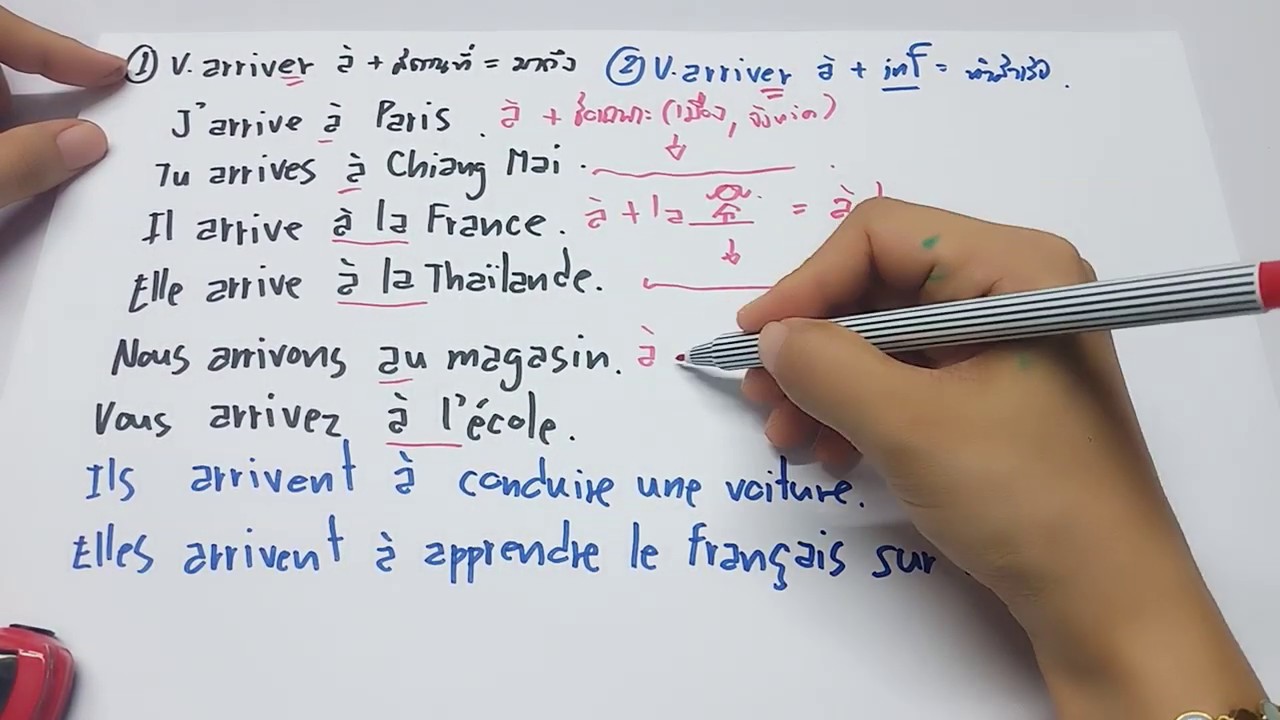 ① V. arriver à + สถานที่ = มาถึง ② V. arriver à + inf = ทำสำเร็จ.
J'arrive à Paris. à + ชื่อเฉพาะ (เมือง, จังหวัด)
Tu arrives à Chiang Mai.
Il arrive à la France. à + la = à
Elle arrive à la Thaïlande.
Nous arrivons au magasin. à
Vous arrivez à l'école.
Ils arrivent à conduire une voiture.
Elles arrivent à apprendre le français sur